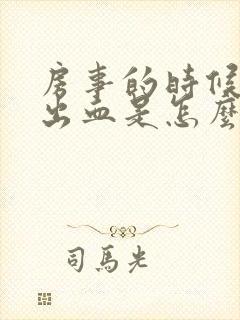 房事的時候
出血是怎麼
司馬光